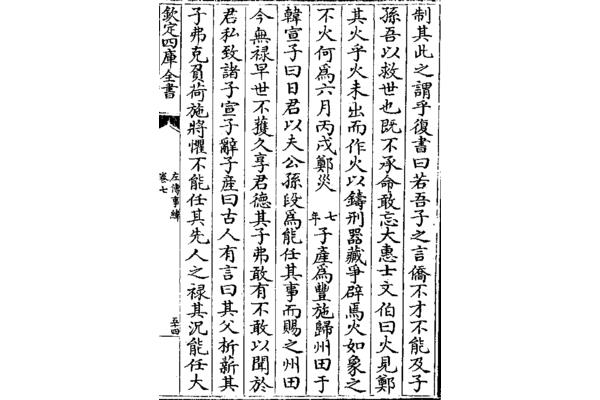 制其此之謂乎復書曰若吾子之言僑不才不能及子
孫吾以救世也既不承命敢忘大惠士文伯曰火見鄭
其火乎火未出而作火以鑄刑器藏爭辟焉火如象之
不火何為六月丙戌鄭災 七年 子產為豐施歸州田于
韓宣子曰日君以夫公孫段為能任其事而賜之州田
今無禄早世不獲久享君德其子弗敢有不敢以聞於
君私致諸子宣子辭子產曰古人有言曰其父析薪其
子弗克負荷施將懼不能任其先人之禄其況能任大
欽定四庫全書
左傳事緯
卷七
五十四